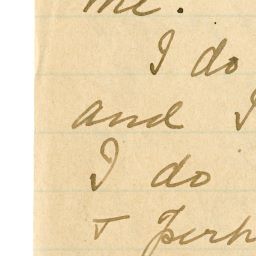 me.
I do
and I
I do
+ Perh